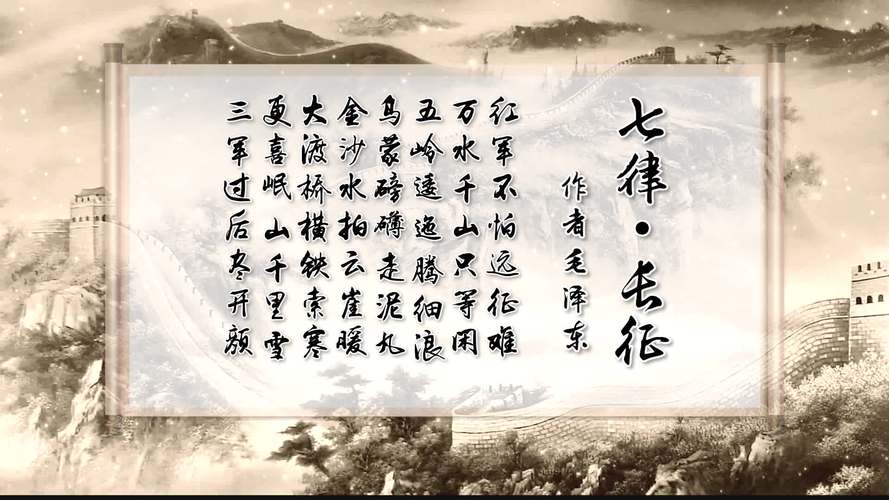 七律·长征
作者毛泽东
红军不怕远征难
万水千山只等闲
五岭逶迤腾细浪
乌蒙磅礴走泥丸
金沙水拍云崖暖
大渡桥横铁索寒
更喜岷山千里雪
三军过后尽开颜